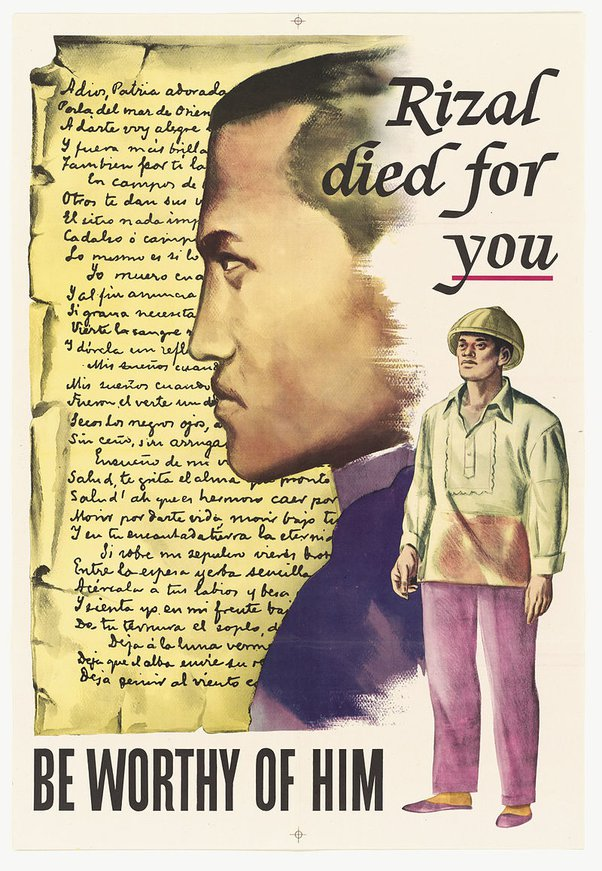 Rizal
died for
you
Adios, Patria adorada
Perla del mar de Orien
A darte voy alegre
Y fuera más brilla
Tambien por ti la
En campos de
Otros te dan sus v
El sitio nada imp
Cadalso ó camp
Lo mismo es si lo
Yo muero cua
Y al fin anuncia
Si grana necesita
Vierte la sangre
Y dórela un refl
Mis sueños cuand
Mis sueños cuando
Fueron el verte un d
Secos los negros ojos, a
Sin ceño, sin arruga
Ensueño de mi v
Salud, te grita el alma que pronto
Salud! ah que es hermoso caer por
Morir por darte vida, morir bajo tu
Y en tu encantada tierra la eterni
Si sobre mi sepulcro vieres brot
Entre la espesa yerba sencilla
Acércala a tus labios y besa
Y sienta yo en mi frente ba
De tu ternura el soplo, d
Deja á la luna verm
Deja que el alba envie su r
Deja gemir al viento c
BE WORTHY OF HIM